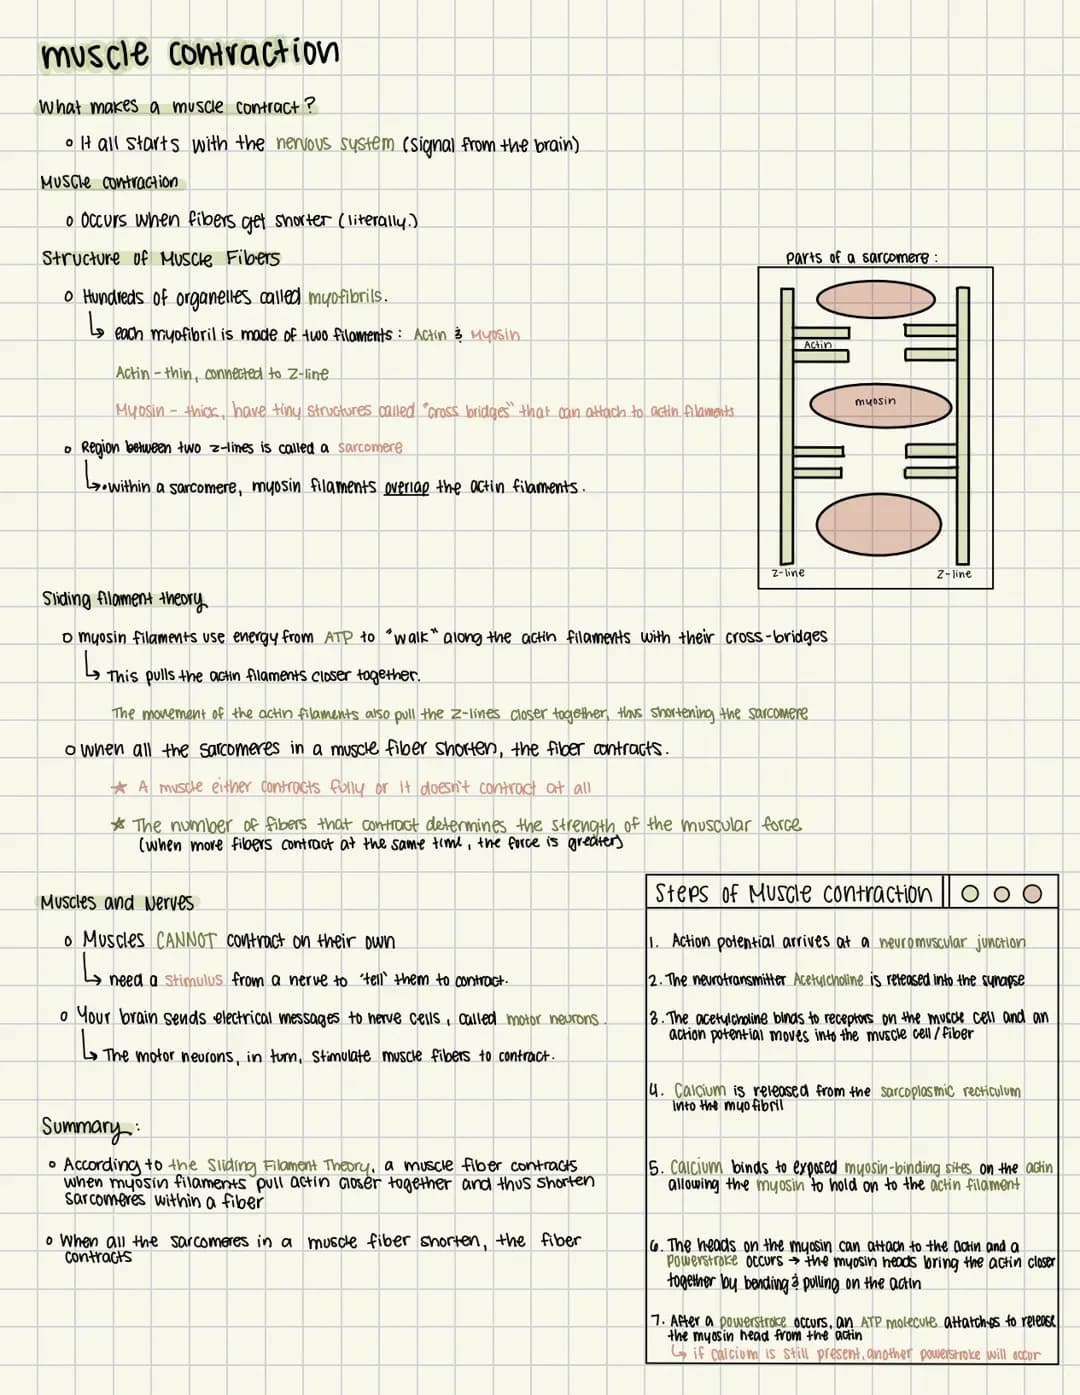 muscle contraction
What makes a muscle contract?
It all starts with the nervous system (signal from the brain)
Muscle contraction
Occurs when fibers get shorter (literally.)
Structure of Muscle Fibers
Hundreds of organelles called myofibrils.
↳ each myofibril is made of two filaments: Actin & Myosin
Actin - thin, connected to Z-line
Myosin - thick, have tiny structures called "cross bridges" that can attach to actin filaments
Region between two z-lines is called a sarcomere
↳ • within a sarcomere, myosin filaments overlap the actin filaments.
parts of a sarcomere:
Actin
myosin
Z-line
Z-line
Sliding filament theory
myosin filaments use energy from ATP to "walk" along the actin filaments with their cross-bridges
↳ This pulls the actin filaments closer together.
The movement of the actin filaments also pull the z-lines closer together, thus shortening the sarcomere
When all the sarcomeres in a muscle fiber shorten, the fiber contracts.
☆ A muscle either contracts fully or it doesn't contract at all
☆ The number of fibers that contract determines the strength of the muscular force
(when more fibers contract at the same time, the force is greater)
Muscles and Nerves
Muscles CANNOT contract on their own
↳ need a stimulus from a nerve to 'tell' them to contract.
Your brain sends electrical messages to nerve cells, called motor neurons.
↳ The motor neurons, in turn, stimulate muscle fibers to contract.
Summary:
According to the Sliding Filament Theory, a muscle fiber contracts
when myosin filaments pull actin closer together and thus shorten
sarcomeres within a fiber
When all the sarcomeres in a muscle fiber shorten, the fiber
contracts
Steps of Muscle contraction
1. Action potential arrives at a neuromuscular junction
2. The neurotransmitter Acetylcholine is released into the synapse
3. The acetylcholine binds to receptors on the muscle cell and an
action potential moves into the muscle cell / fiber
4. Calcium is released from the sarcoplasmic recticulum
into the myofibril
5. Calcium binds to exposed myosin-binding sites on the actin
allowing the myosin to hold on to the actin filament
6. The heads on the myosin can attach to the actin and a
Powerstroke occurs → the myosin heads bring the actin closer
together by bending & pulling on the actin
7. After a powerstroke occurs, an ATP molecule attatches to release
the myosin head from the actin
↳ if calcium is still present, another powerstroke will occur